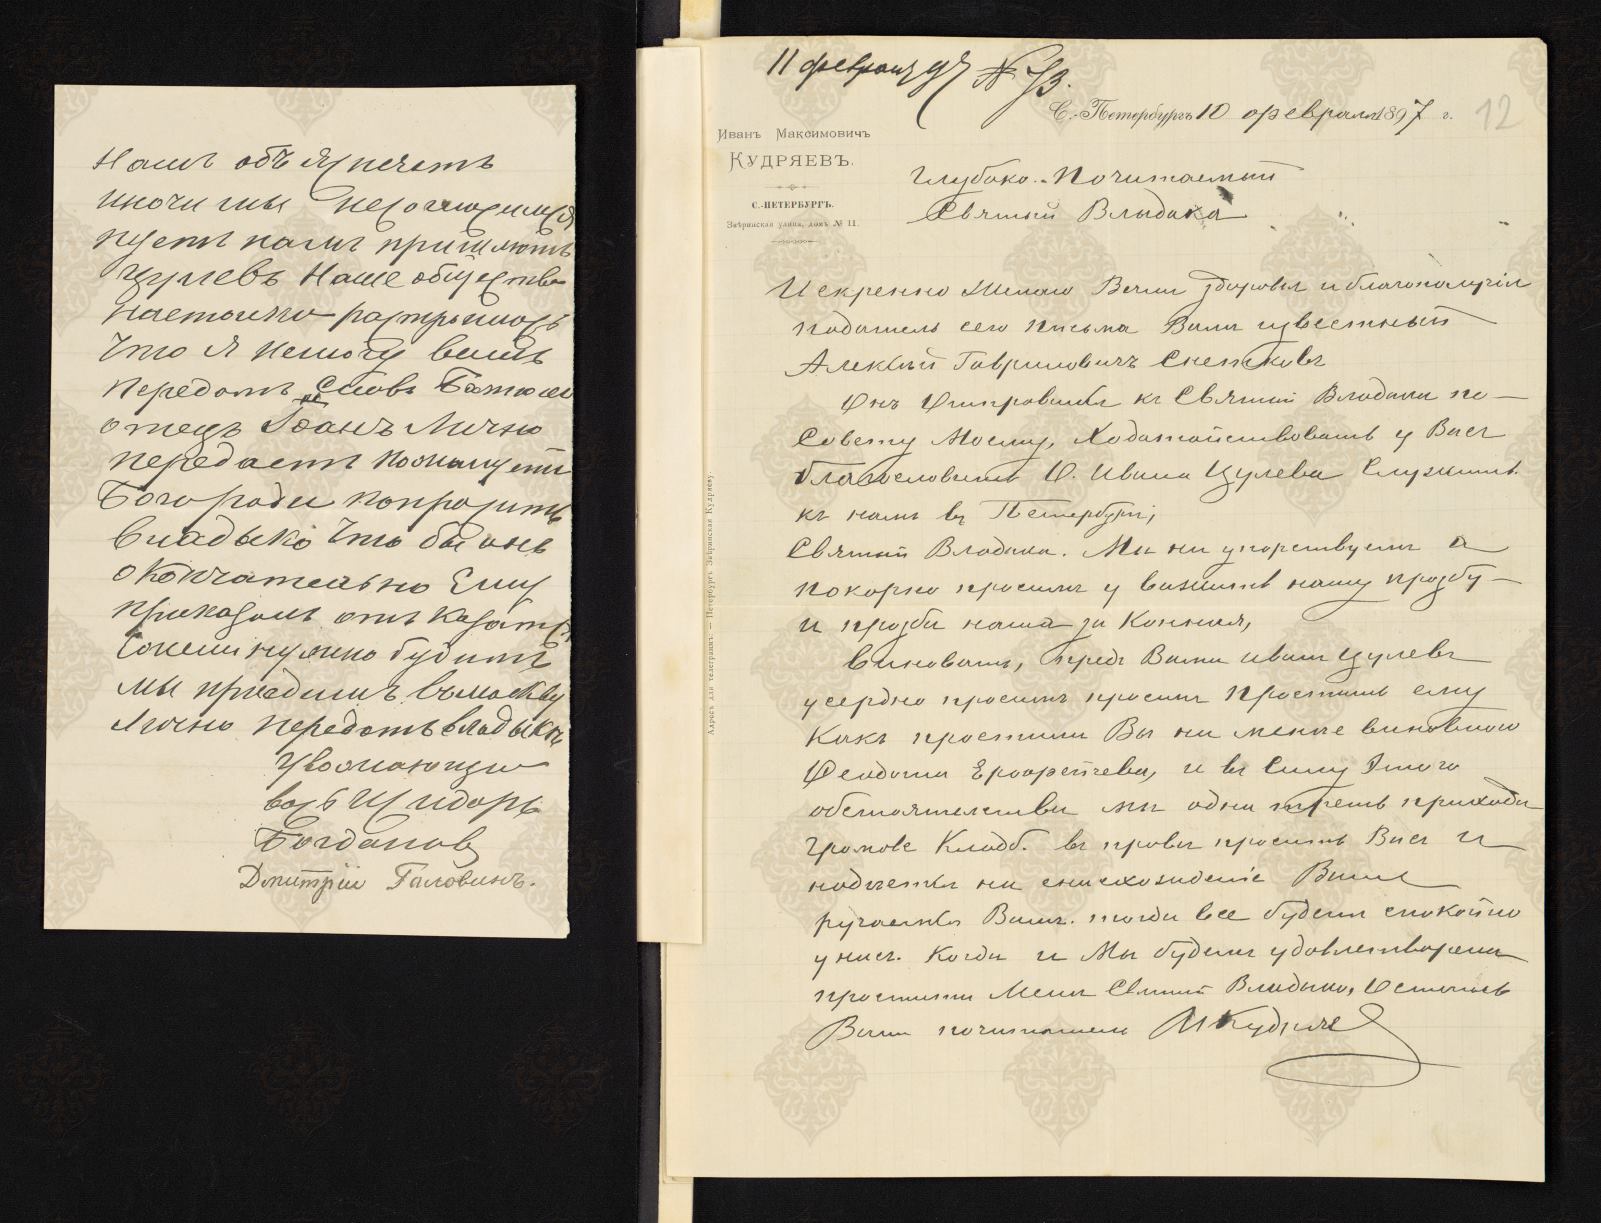 намъ объяснетъ
иначи мы несогласимся
пусть намъ пришлютъ
Цулевъ Наше общество
настолько растроилось
что я немогу вамъ
передать Словъ Батюшко
отецъ Іоанъ Лично
передастъ пожалуста
Богоради попросите
владыко что бы онъ
окончательно Ему
приказалъ отказатся
Ежели нужно будитъ
мы приедимъ вмоскву
Лично передать владыки
Уважающи
васъ Исидоръ
Богдановъ
Дмитрій Галовинъ.
11 февраля 97 № 73.
С.-Петербургъ 10 февраля 1897 г.
12
Иванъ Максимовичъ
КУДРЯЕВЪ.
С.-ПЕТЕРБУРГЪ.
Звѣринская улица, домъ № 11.
Адресъ для телеграммъ: — Петербургъ Звѣринская Кудряеву.
Глубоко-Почитаемый
Святый Владыка
Искренно Желаю Вамъ здоровья и благополучія
податель сего письма Вамъ известный
Алексѣй Гавриловичъ Снетковъ
Онъ Отправился къ Святый Владыки по
Совету Моему, Ходатайствовать у Васъ
благословить О. Ивана Цулева Служить
къ намъ въ Петербургъ,
Святый Владыка. Мы ни упорствуемъ а
покорно просимъ уважить нашу прозбу
и прозба наша законная,
виноватъ, предъ Вами Иванъ Цулевъ
усердно просимъ просимъ простить ему
Какъ простили Вы ни менее виновнаго
Феодота Ерофеичева, и въ Силу Этого
обстоятельства мы одни треть прихода
Громовс Кладб. въ праве просить Васъ и
надеемся на снисхождение Ваше
ручаемся Вамъ. тогда все будетъ спокойно
у насъ. Когда и Мы будемъ удовлетворены
простити Меня Святый Владыко, Остаюсь
Вашъ почитатель ИКудряев